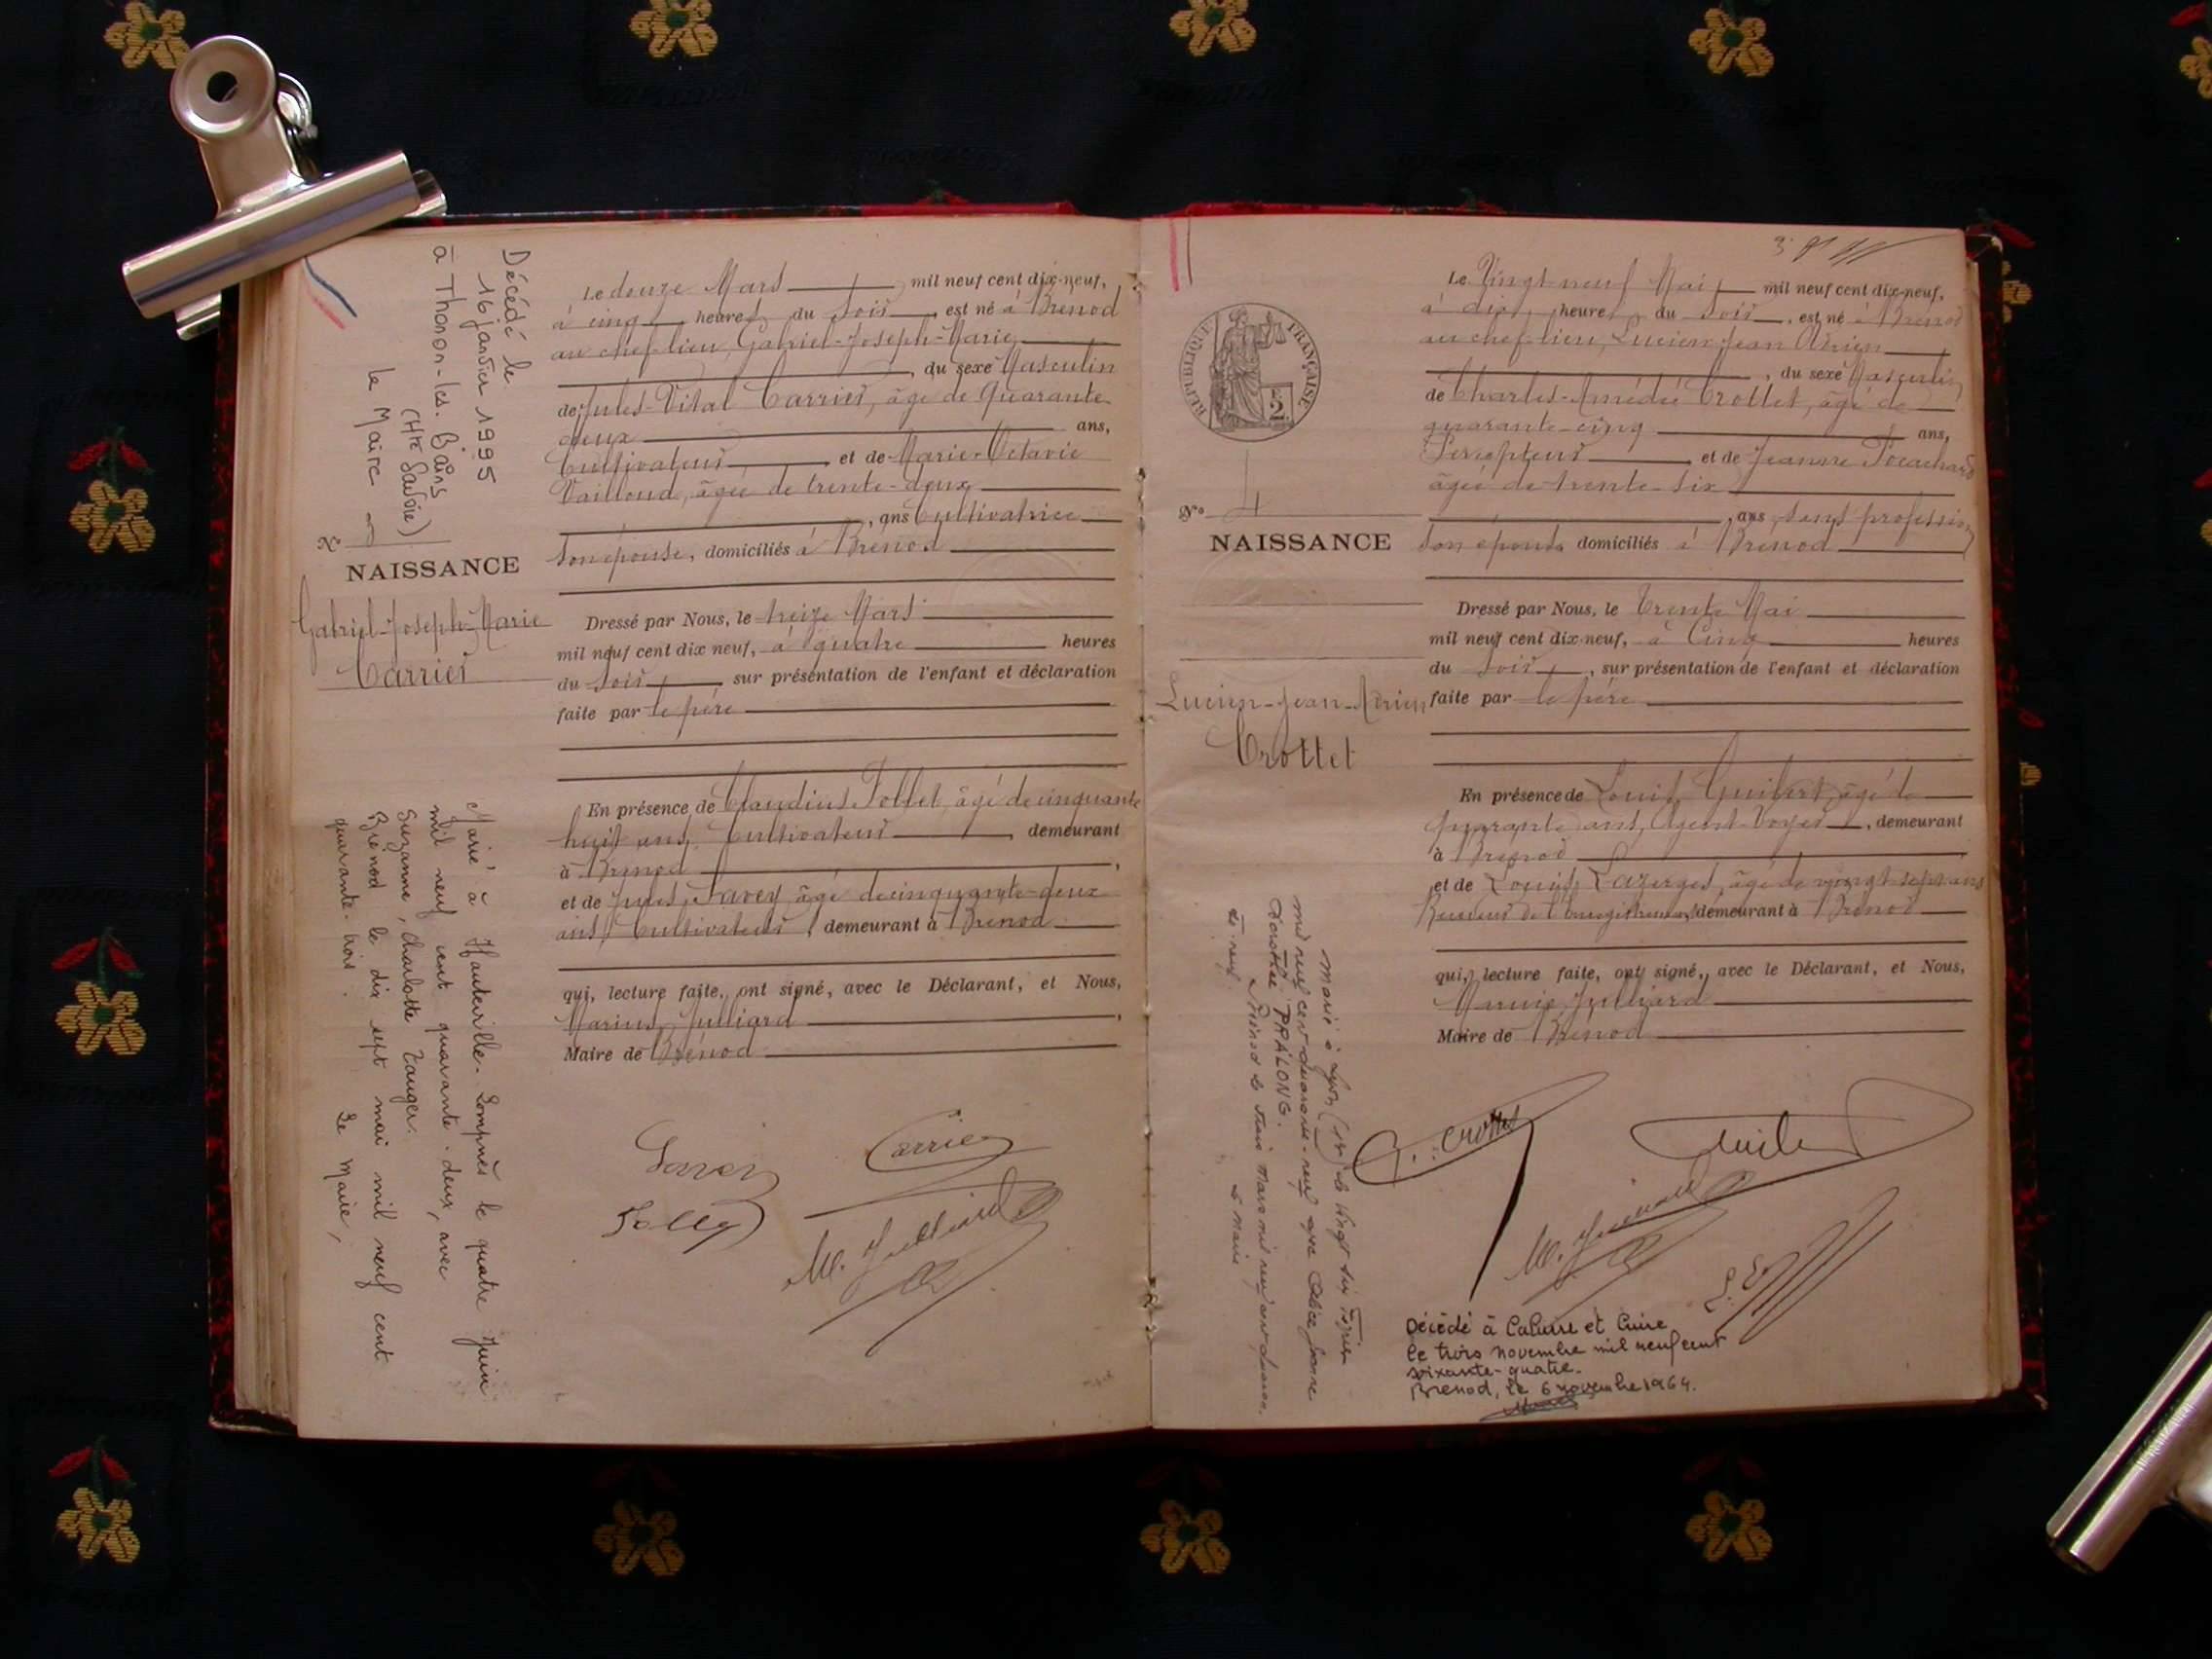 Décédé le
16 janvier 1995
à Thonon-les-Bains
(Hte Savoie)
Le Maire
No
NAISSANCE
Gabriel-Joseph-Marie
Carrier
Marié à Hauteville-Lompnès le quatre Juin
mil neuf cent quarante-deux, avec
Suzanne, Charlotte Zauger.
Brénod le dix sept mai mil neuf cent
quarante-trois. Le Maire,
Le douze Mars mil neuf cent dix-neuf,
à cinq heures du Soir, est né à Brénod
au chef-lieu, Gabriel-Joseph-Marie
, du sexe Masculin
de Jules-Vital Carrier, âgé de Quarante
deux ans,
Cultivateur, et de Marie-Octavie
Vailloud, âgée de trente-deux
, ans Cultivatrice
son épouse, domiciliés à Brénod
Dressé par Nous, le treize Mars
mil neuf cent dix neuf, à quatre heures
du Soir, sur présentation de l'enfant et déclaration
faite par le père
En présence de Claudius Tollet, âgé de cinquante
huit ans, Cultivateur, demeurant
à Brénod,
et de Jules Savey âgé de cinquante-deux
ans, Cultivateur, demeurant à Brénod
qui, lecture faite, ont signé, avec le Déclarant, et Nous,
Marius Julliard,
Maire de Brénod
Savey
Carrier
M. Julliard
REPUBLIQUE FRANÇAISE
2
No 4
NAISSANCE
Lucien-Jean-Adrien
Crottet
Marié à Lyon le vingt six Février
mil neuf cent quarante-neuf avec Alice Jeanne
Dorothée PRALONG.
Brénod le trois Mars mil neuf cent quaran
te-neuf. Le Maire
Le Vingt neuf Mai mil neuf cent dix-neuf,
à dix heures du soir, est né à Brénod
au chef-lieu, Lucien Jean Adrien
, du sexe Masculin
de Charles-Amédée Crottet, âgé de
quarante-cinq ans,
Percepteur, et de Jeanne
âgée de trente-six
, ans sans profession
son épouse domiciliés à Brénod
Dressé par Nous, le Trente Mai
mil neuf cent dix-neuf, à Cinq heures
du Soir, sur présentation de l'enfant et déclaration
faite par le père
En présence de Louis Guibert, âgé de
quarante ans, Agent-Voyer, demeurant
à Brénod,
et de Louis Lazerges, âgé de vingt sept ans
Receveur de l'Enregistrement, demeurant à Brénod
qui, lecture faite, ont signé, avec le Déclarant, et Nous,
Marius Julliard
Maire de Brénod
Crottet
M. Julliard
Décédé à Caluire et Cuire
le trois novembre mil neuf cent
soixante-quatre.
Brénod, le 6 novembre 1964.